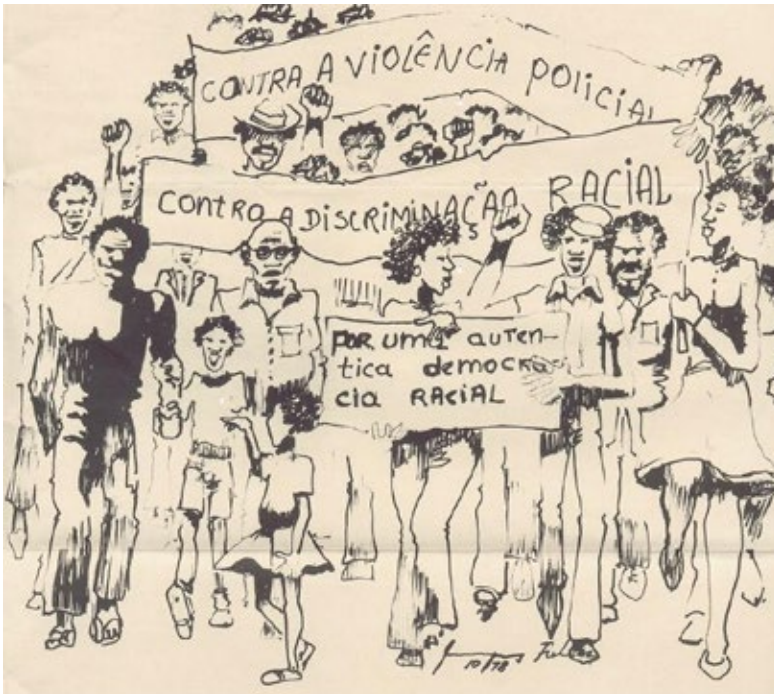 CONTRA A VIOLÊNCIA POLICIAL
CONTRA A DISCRIMINAÇÃO RACIAL
POR UMA AUTEN-
tica democra
cia RACIAL
10/78